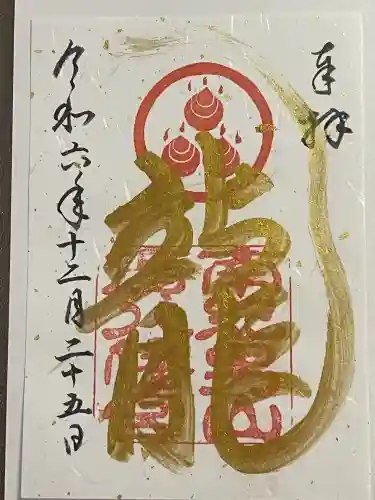 奉拝
龍
令和六年十二月二十五日